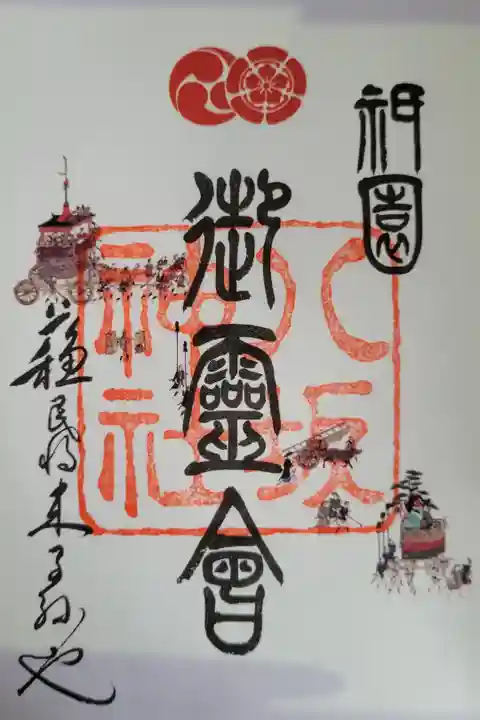 祇園
八坂神社
御靈會
蘇民将来子孫也